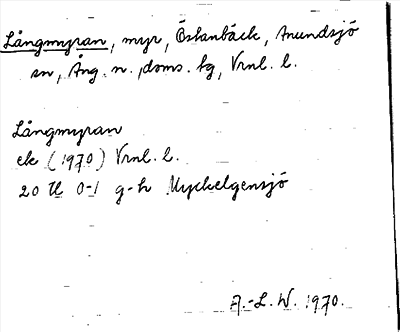 Långmyran, myr, Östanbäck, Anundsjö
sn, Ång. n., doms. tg, Vrnl. l.
Långmyran
ek (1970) Vrnl. l.
20 H 0-1 g-h Myckelgensjö
A.-L. W. 1970.